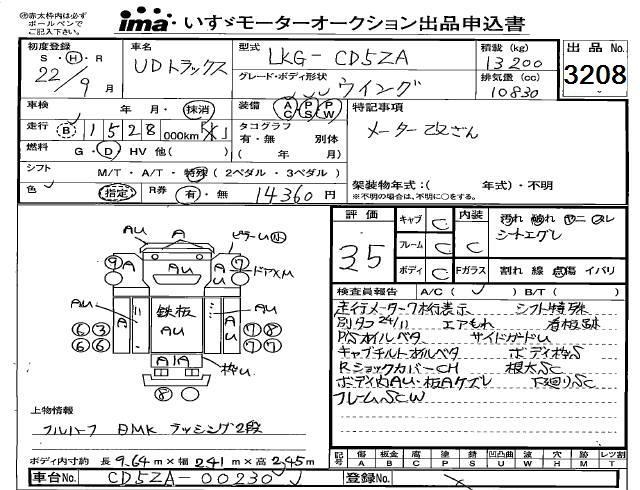 ㊟赤太枠内は必ず
ボールペンで
ご記入下さい。
ima いすゞモーターオークション出品申込書
初度登録
S・H・R
22/9月
車名
UDトラックス
型式
LKG-CD5ZA
グレード・ボディ形状
ウイング
積載(kg)
13200
排気量(cc)
10830
出品No.
3208
車検
年・月・抹消
装備
AC PS PW
特記事項
メーター改ざん
走行
B 1528 000km
タコグラフ
有・無 別体
(年 月)
燃料
G・D・HV 他( )
シフト
M/T・A/T・特殊(2ペダル・3ペダル)
色
指定
R券
有・無 14360円
架装物年式:( 年式)・不明
※不明の場合は、不明に○をする。
評価
35
キャブ C
フレーム C
ボディ C
内装 C
Fガラス C
汚れ 破れ ヤニ スレ
シートエグレ
割れ 線 点傷 イバリ
検査員報告 A/C( ) B/T( )
走行メーター7桁表示 シフト特殊
別タコ24/11 エアもれ 看板跡
P/Sオイルベタ サイドガードU
キャブチルトオイルベタ ボディ枠S
RショックカバーCH 根太SC
ボディ内AU・板Aケズレ 下廻りSC
フレームSCW
ピラーU 小
ドアヌU
AU
A
鉄板
AU
枠U
上物情報
フルハーフ BMK ラッシング2段
ボディ内寸約 長9.64m×幅2.41m×高2.45m
記号 傷A 板金B 腐C 塗P 錆S 凹凸曲U 波W 穴H 揺M レツ割T
車台No.
CD5ZA-00230
登録No.